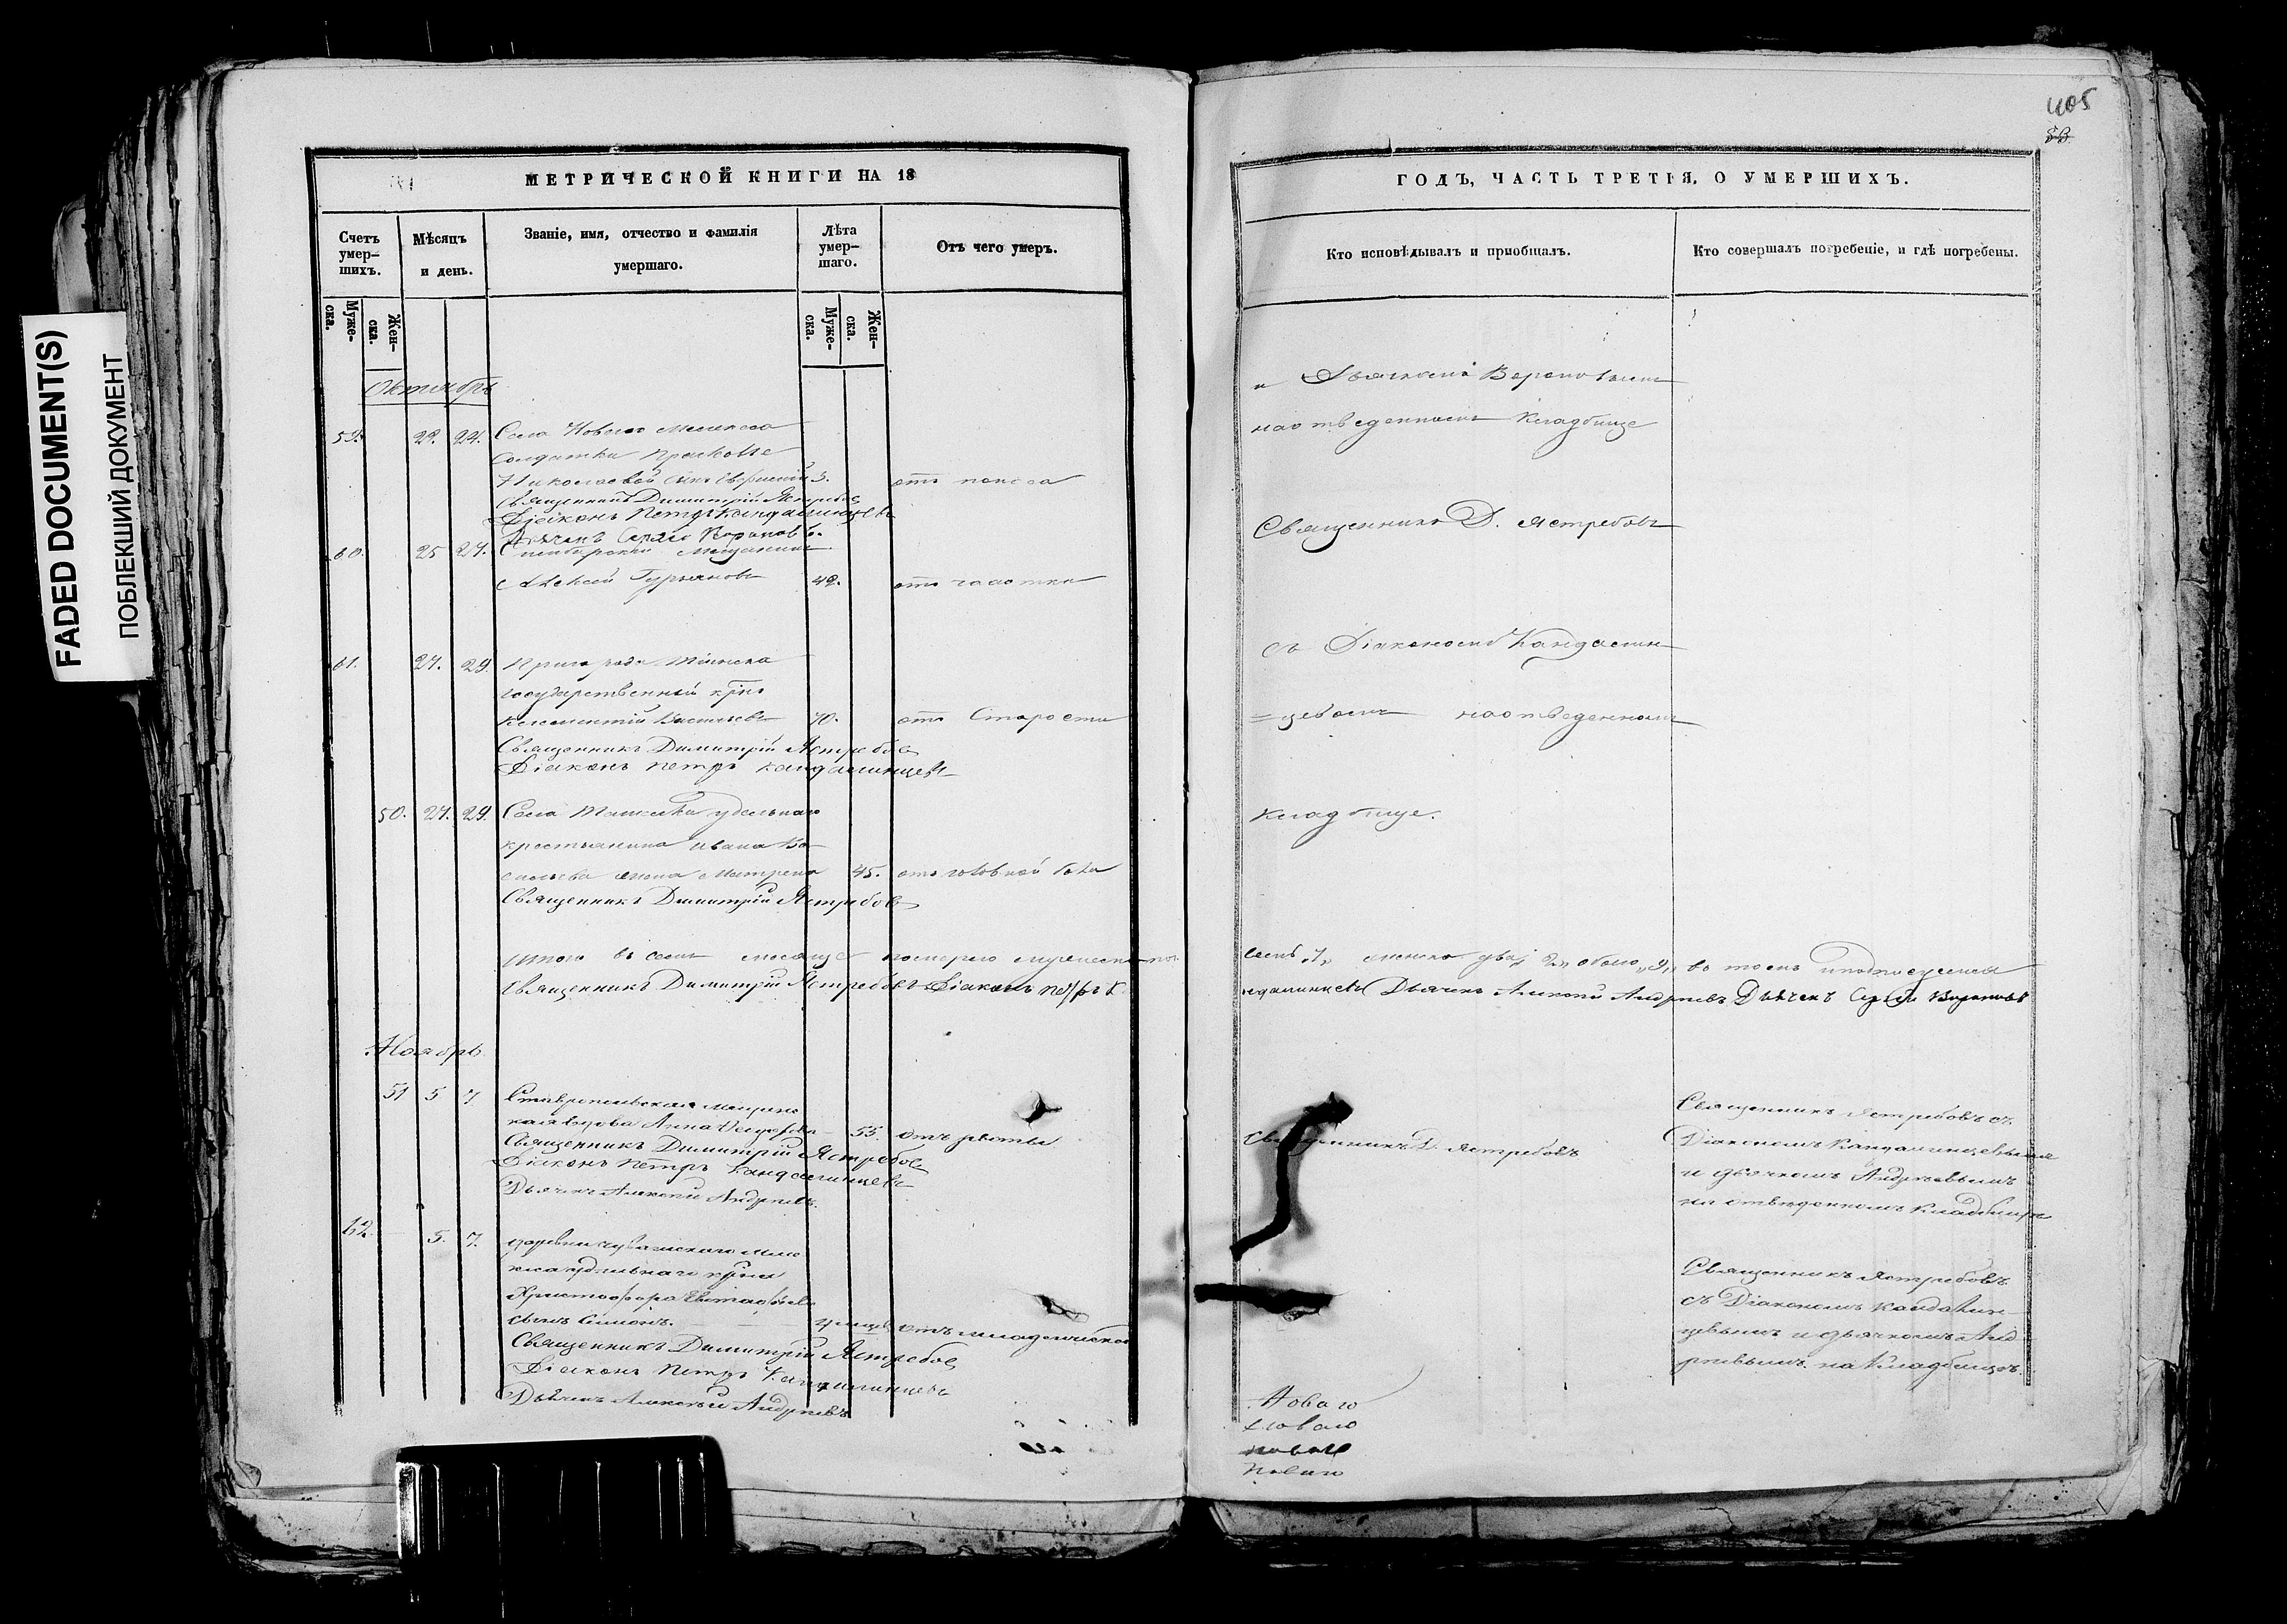 FADED DOCUMENT(S)
ПОБЛЕКШИЙ ДОКУМЕНТ
МЕТРИЧЕСКОЙ КНИГИ НА 18
Счетъ умер-шихъ.
Мѣсяцъ и день.
Званіе, имя, отчество и фамилія умершаго.
Лѣта умер-шаго.
Отъ чего умеръ.
Муже-ска.
Жен-ска.
Муже-ска.
Жен-ска.
Октябрь
59. 22. 24. Села Новаго
солдатки Прасковьи
Николаевой сынъ 3. отъ поноса
Священникъ Димитрій Ястребовъ
Діаконъ Петръ Кандалинцевъ
Дьячекъ Вороновъ
60. 25 27. Симбирскій Мещанинъ
Алексей Гурьяновъ 42. отъ чахотки
61. 27. 29. Пригорода Тіинска
государственный крнъ
Климентій Васильевъ 70. отъ Старости
Священникъ Димитрій Ястребовъ
Діаконъ Петръ Кандалинцевъ
50. 27. 29. Села удельнаго
крестьянина Ивана Ва-
сильева жена Матрена 45. отъ головной боли
Священникъ Димитрій Ястребовъ
Итого въ семъ месяце померло мужеска пола
Священникъ Димитрій Ястребовъ Діаконъ Петръ К
Ноябрь
51 5 7. Ставропольская мещанка
Анна 55. отъ
Священникъ Димитрій Ястребовъ
Діаконъ Петръ Кандалинцевъ
Дьячекъ Алексей Андреевъ
62. 5. 7. деревни чувашскаго
удельнаго крна
Христофора
сынъ Симонъ. отъ младенческой
Священникъ Димитрій Ястребовъ
Діаконъ Петръ Кандалинцевъ
Дьячекъ Алексей Андреевъ
405
ГОДЪ, ЧАСТЬ ТРЕТІЯ, О УМЕРШИХЪ.
Кто исповѣдывалъ и пріобщалъ.
Кто совершалъ погребеніе, и гдѣ погребены.
и Дьячкомъ Вороновымъ
на отведенномъ Кладбище
Священникъ Д. Ястребовъ
съ Діакономъ Кандалин-
=цевымъ на отведенномъ
Кладбище.
семь „7„ женска два „2„ обоего „9„ въ томъ и подписуемся
ндалинцевъ Дьячекъ Алексей Андреевъ Дьячекъ Воронов
Священникъ Д. Ястребовъ
Священникъ Ястребовъ съ
Діакономъ Кандалинцевымъ
и дьячкомъ Андреевымъ
на отведенномъ Кладбище
Священникъ Ястребовъ
съ Діакономъ Кандалин-
цевымъ и дьячкомъ Анд
реевымъ на Кладбище.
Новаго
Новаго
Новаго
Новаго